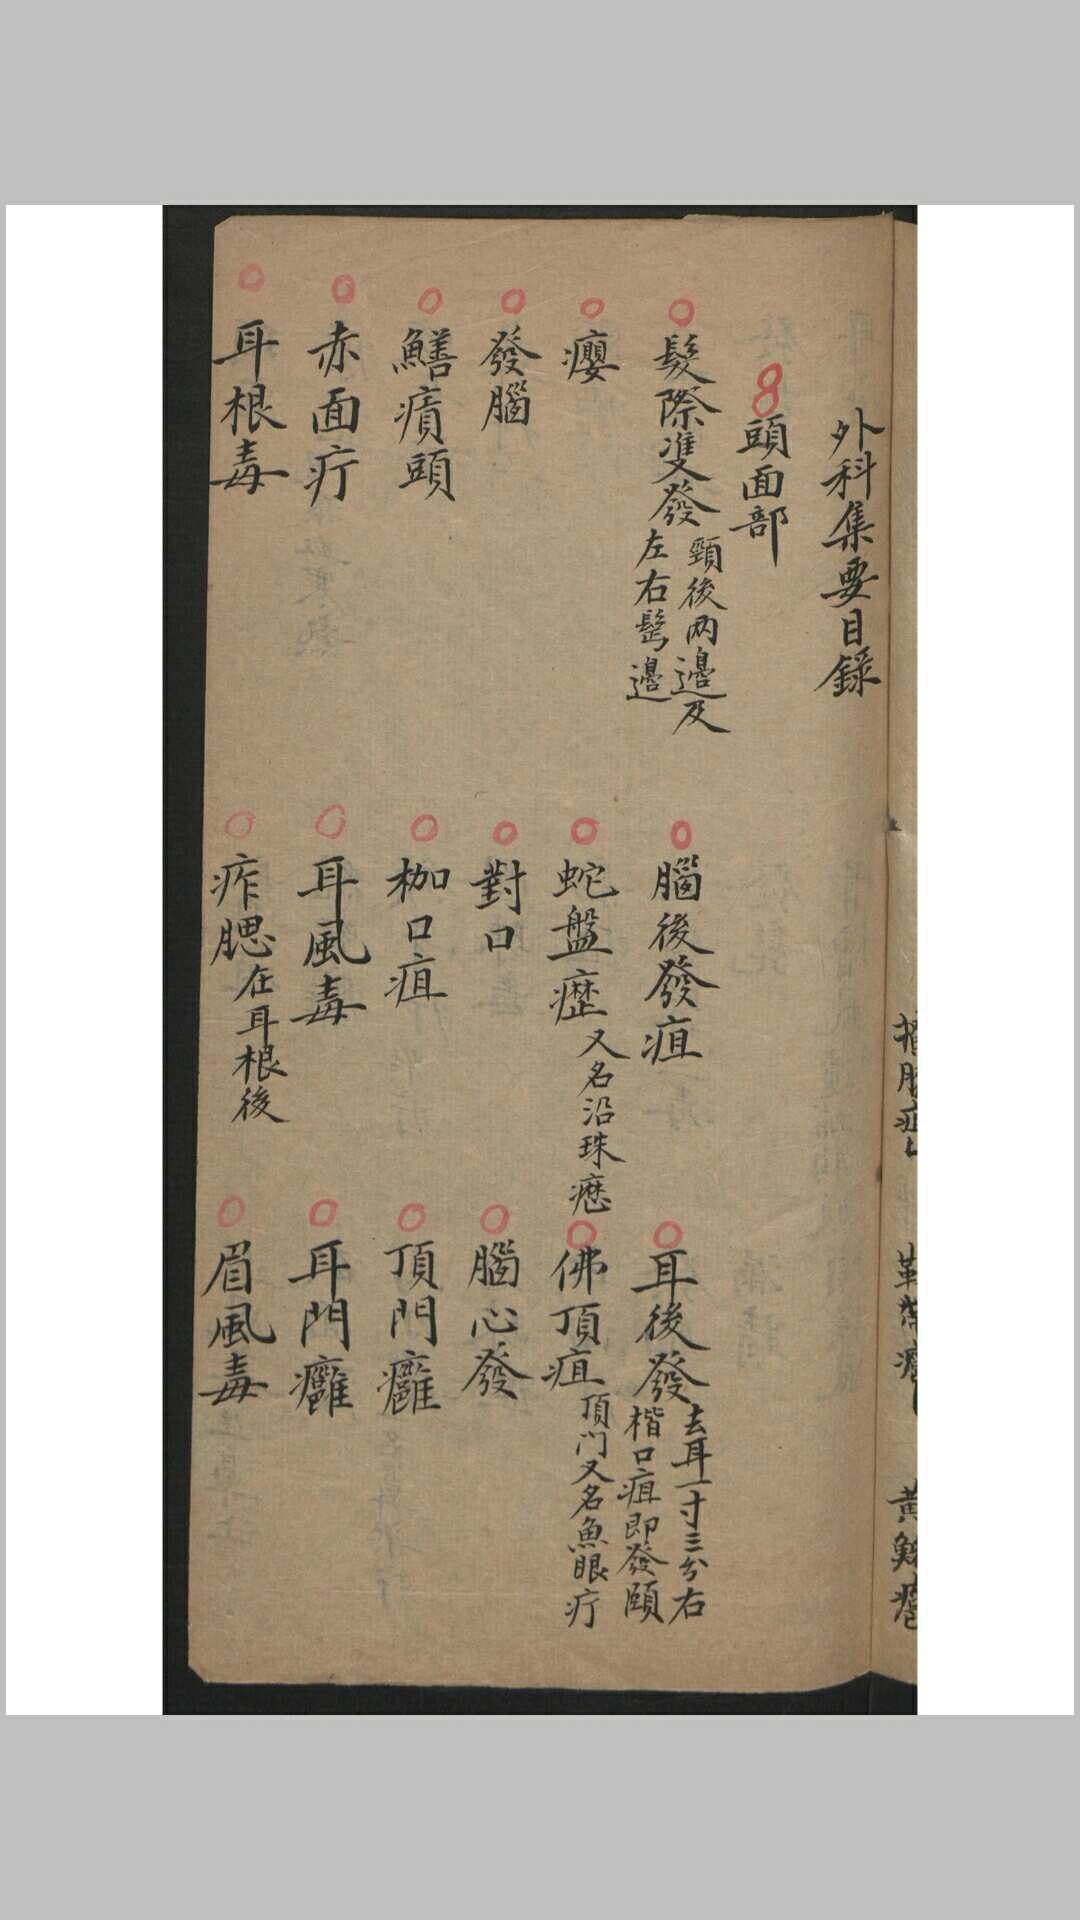 外科集要目錄
頭面部
髮際雙發 頸後兩邊及左右髩邊
腦後發疽
耳後發 去耳一寸三分右楷口疽即發頤
癭
蛇盤癧 又名沿珠癧
佛頂疽 頂门又名魚眼疔
發腦
對口
腦心發
鱔癀頭
枷口疽
頂門癰
赤面疔
耳風毒
耳門癰
耳根毒
痄腮 在耳根後
眉風毒